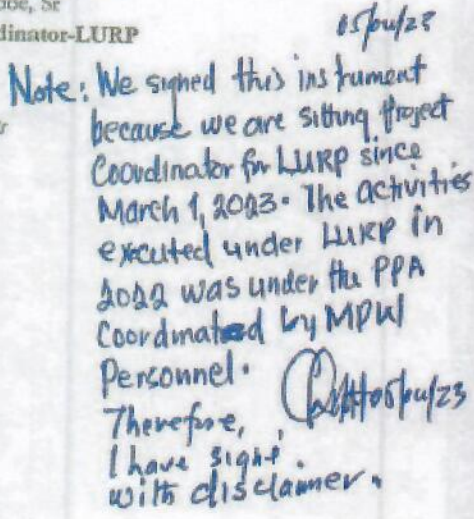 Sr
dinator-LURP
05/04/23
Note: We signed this instrument
because we are sitting Project
Coordinator for LURP since
March 1, 2023. The activities
executed under LURP in
2022 was under the PPA
Coordinated by MPW
Personnel.
05/04/23
Therefore,
I have sight
with disclaimer.